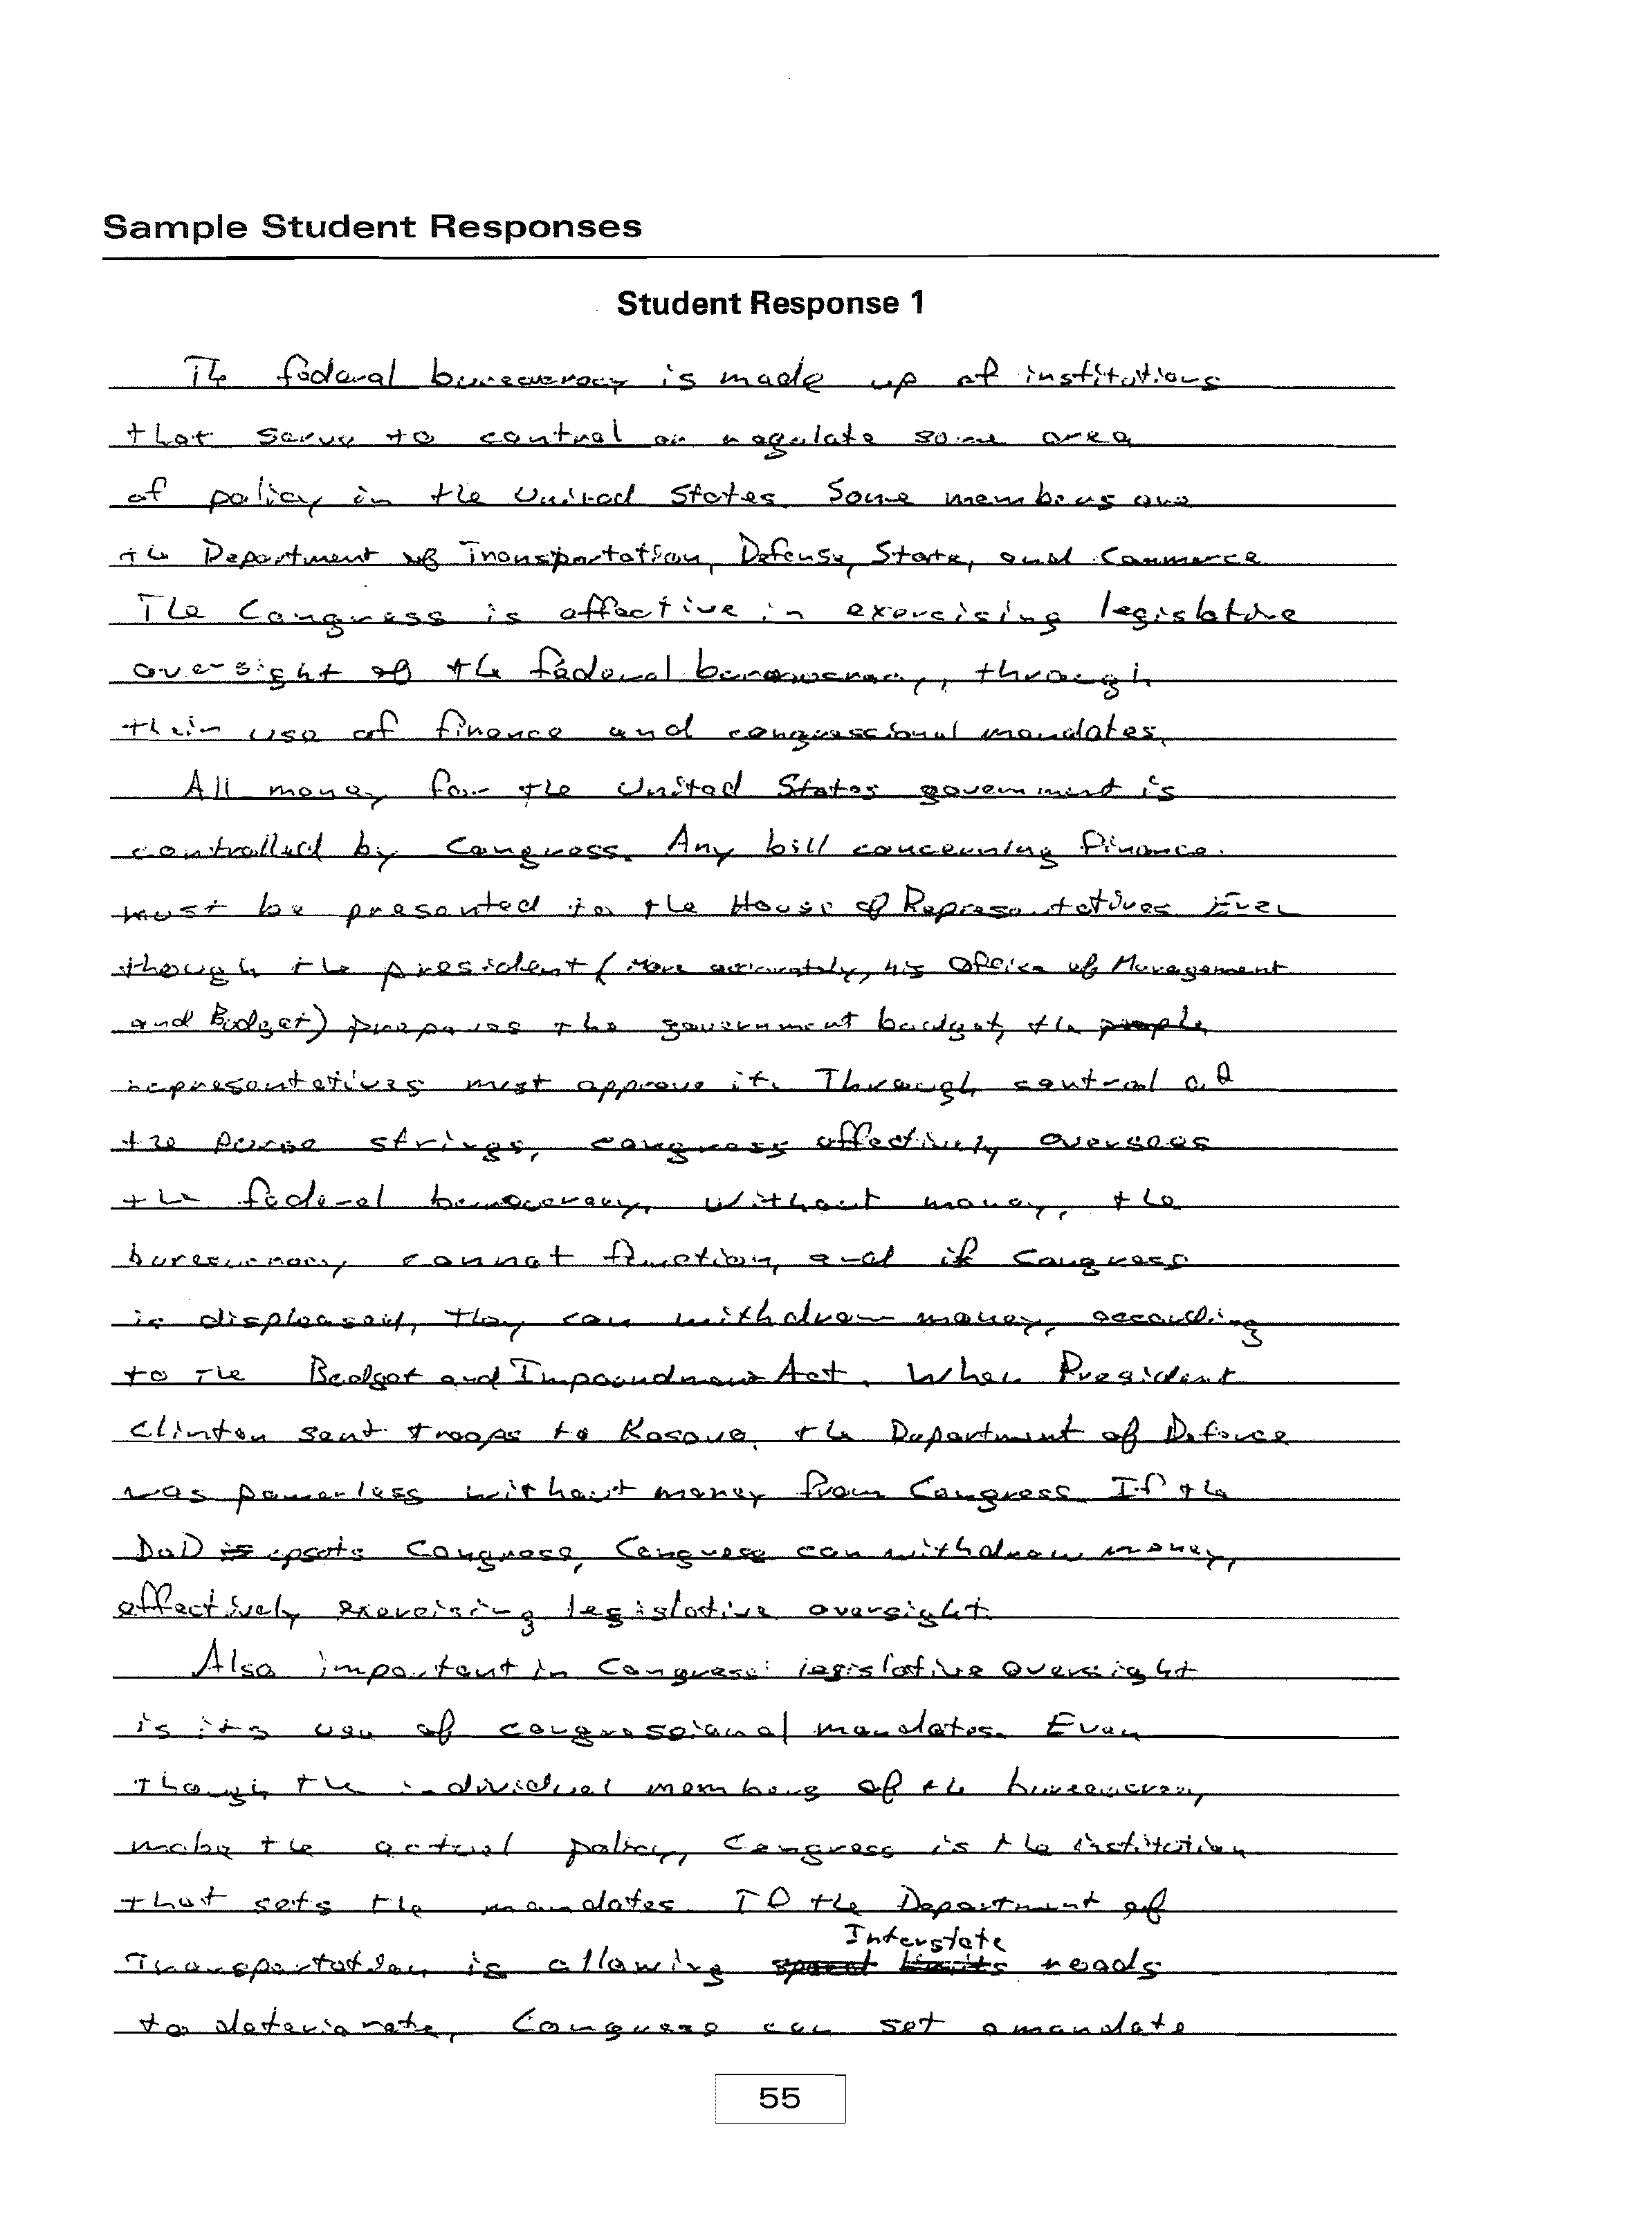 Sample Student Responses
Student Response 1
The federal bureaucracy is made up of institutions
that serve to control or regulate some area
of policy in the United States. Some members are
the Department of Transportation, Defense, State, and Commerce
The Congress is effective in exercising legislative
oversight of the federal bureaucracy, through
their use of finance and congressional mandates.
All money for the United States government is
controlled by Congress. Any bill concerning finance
must be presented to the House of Representatives Even
though the president (more accurately, his Office of Management
and Budget) prepares the government budget, the people
representatives must approve it. Through control of
the purse strings, congress effectively oversees
the federal bureaucracy. Without money, the
bureaucracy cannot function, and if Congress
is displeased, they can withdraw money, according
to the Budget and Impoundment Act. When President
Clinton sent troops to Kosovo, the Department of Defense
was powerless without money from Congress. If the
DoD is upsets Congress, Congress can withdraw money,
effectively exercising legislative oversight.
Also important in Congress' legislative oversight
is its use of congressional mandates. Even
though the individual members of the bureaucracy
make the actual policy, Congress is the institution
that sets the mandates. If the Department of
Interstate
Transportation is allowing speed limits roads
to deteriorate, Congress can set a mandate
55